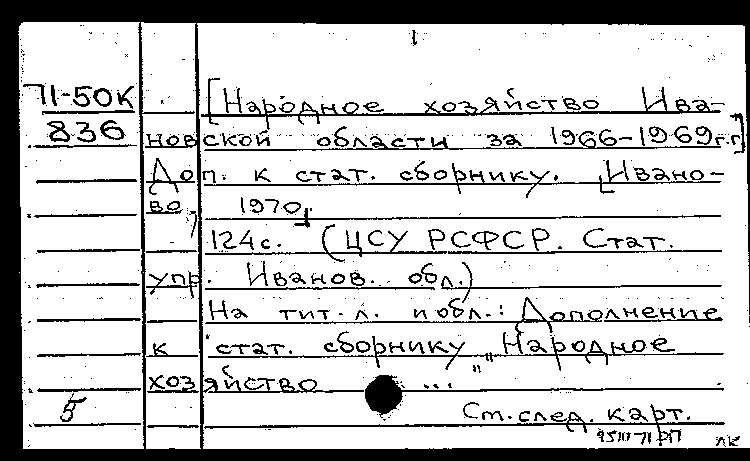 71-50К
836
[Народное хозяйство Ива-
новской области за 1966-1969 г.г.]
Доп. к стат. сборнику. [Ивано-
во, 1970]
124 с. (ЦСУ РСФСР. Стат.
упр. Иванов. обл.)
На тит. л. и обл.: Дополнение
к стат. сборнику „Народное
хозяйство ..."
5
См. след. карт.